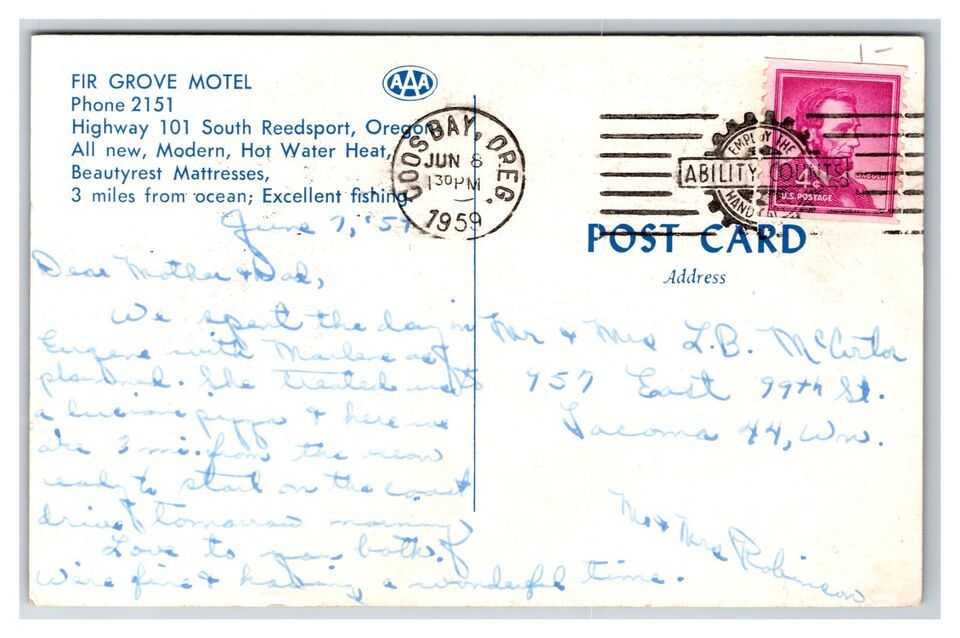 FIR GROVE MOTEL
Phone 2151
Highway 101 South Reedsport, Oregon
All new, Modern, Hot Water Heat,
Beautyrest Mattresses,
3 miles from ocean; Excellent fishing
AAA
COOS BAY, OREG.
JUN 8
1 30 PM
1959
EMPLOY THE
ABILITY COUNTS
HANDICAPPED
4¢
LINCOLN
U.S. POSTAGE
1-
POST CARD
Address
June 7, '59
Dear Mother & Dad,
We spent the day in
Eugene with Marlene as
planned. She treated us to
a luscious pizza & here we
are 3 mi. from the ocean
ready to start on the coast
drive tomorrow morning.
Love to you both.
We're fine & having a wonderful time.
Mr & Mrs L.B.
957 East 99th St.
Tacoma 44, Wn.
Mr & Mrs Robinson